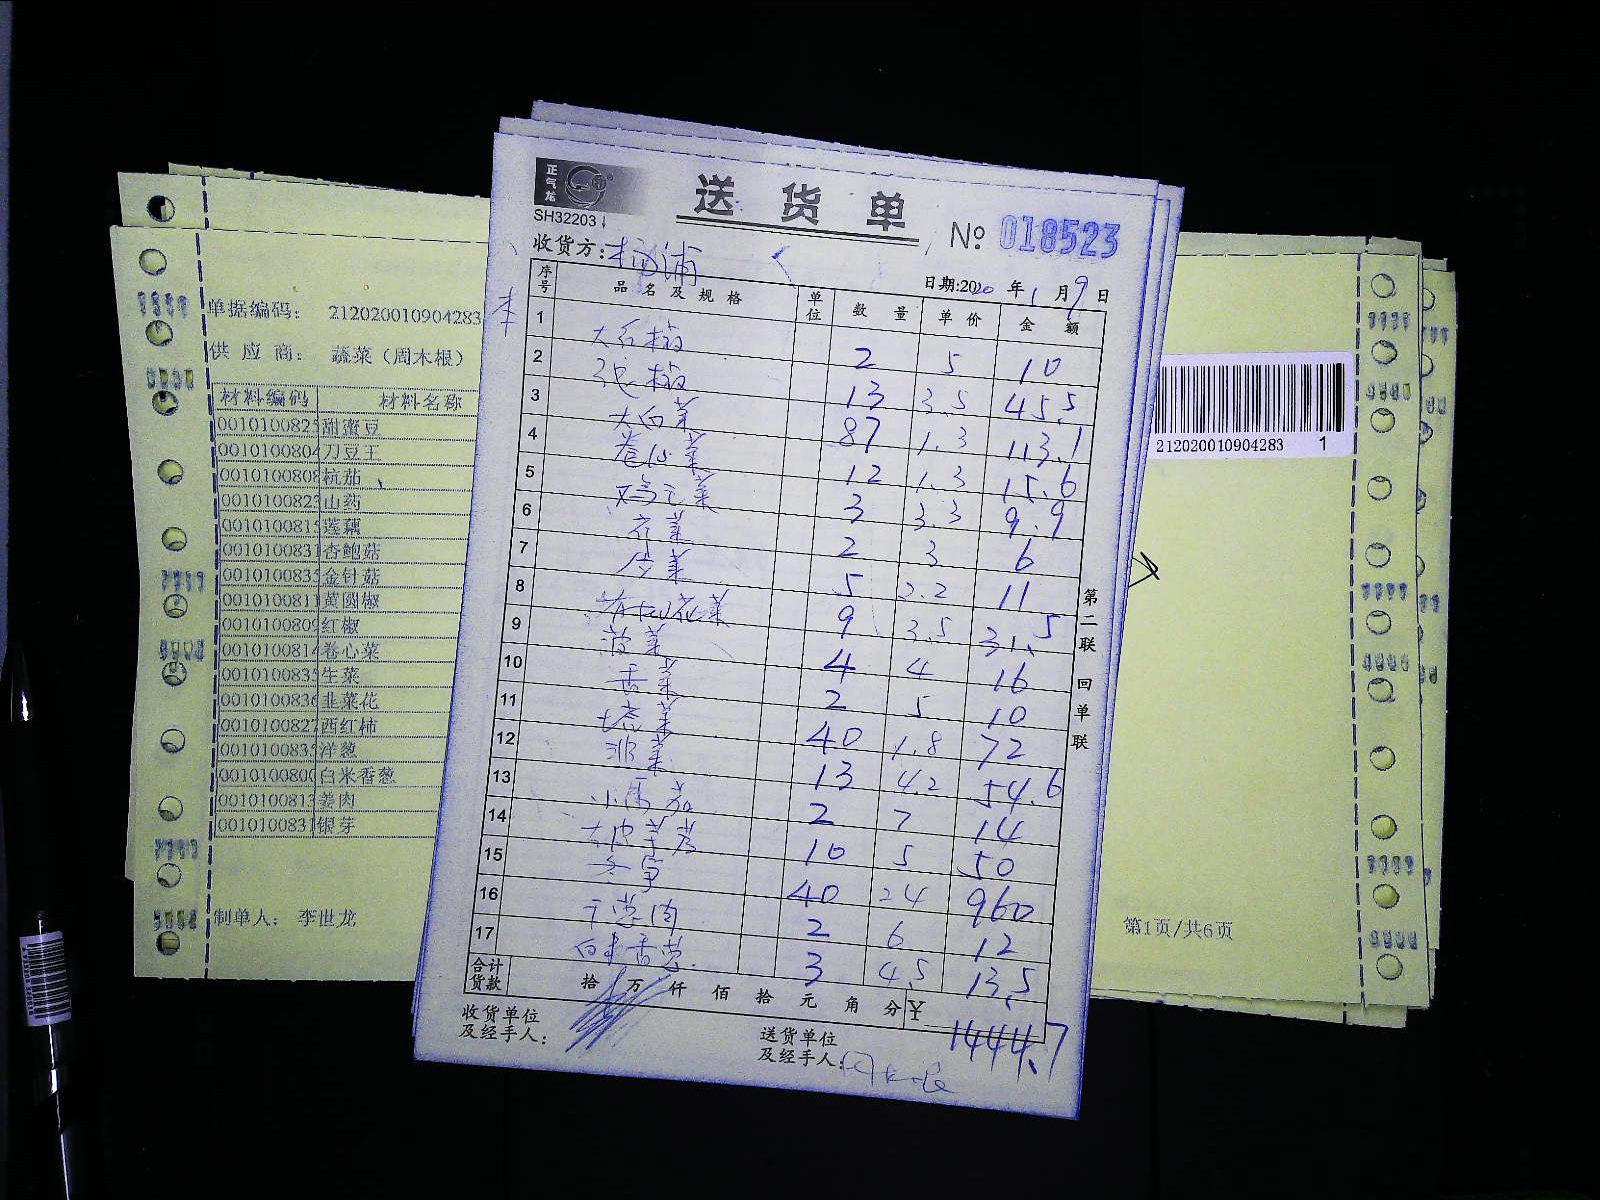 正气龙
SH32203
送货单
№ 018523
收货方：杨浦
日期：2020年1月9日
序号 品名及规格 单位 数量 单价 金额
1 大石椒 2 5 10
2 椒 13 3.5 45.5
3 大白菜 87 1.3 113.1
4 卷心菜 12 1.3 15.6
5 鸡毛菜 3 3.3 9.9
6 花菜 2 3 6
7 菜 5 2.2 11
8 花菜 9 3.5 31.5
9 菠菜 4 4 16
10 菜 2 5 10
11 菜 40 1.8 72
12 韭菜 13 4.2 54.6
13 小 茄 2 7 14
14 大 10 5 50
15 冬笋 40 24 960
16 肉 2 6 12
17 白米香葱 3 4.5 13.5
合计货款 拾 万 仟 佰 拾 元 角 分 ¥ 1444.7
收货单位及经手人：
送货单位及经手人：周木根
第二联 回单联
单据编码： 212020010904283
供应商： 蔬菜（周木根）
材料编码 材料名称
001010082 甜蜜豆
001010080 刀豆王
001010080 杭茄
001010082 山药
001010081 莲藕
001010083 杏鲍菇
001010083 金针菇
001010081 黄圆椒
001010080 红椒
001010081 卷心菜
001010083 生菜
001010083 韭菜花
001010082 西红柿
001010083 洋葱
001010080 白米香葱
001010081 姜肉
001010083 银芽
制单人： 李世龙
212020010904283 1
第1页/共6页